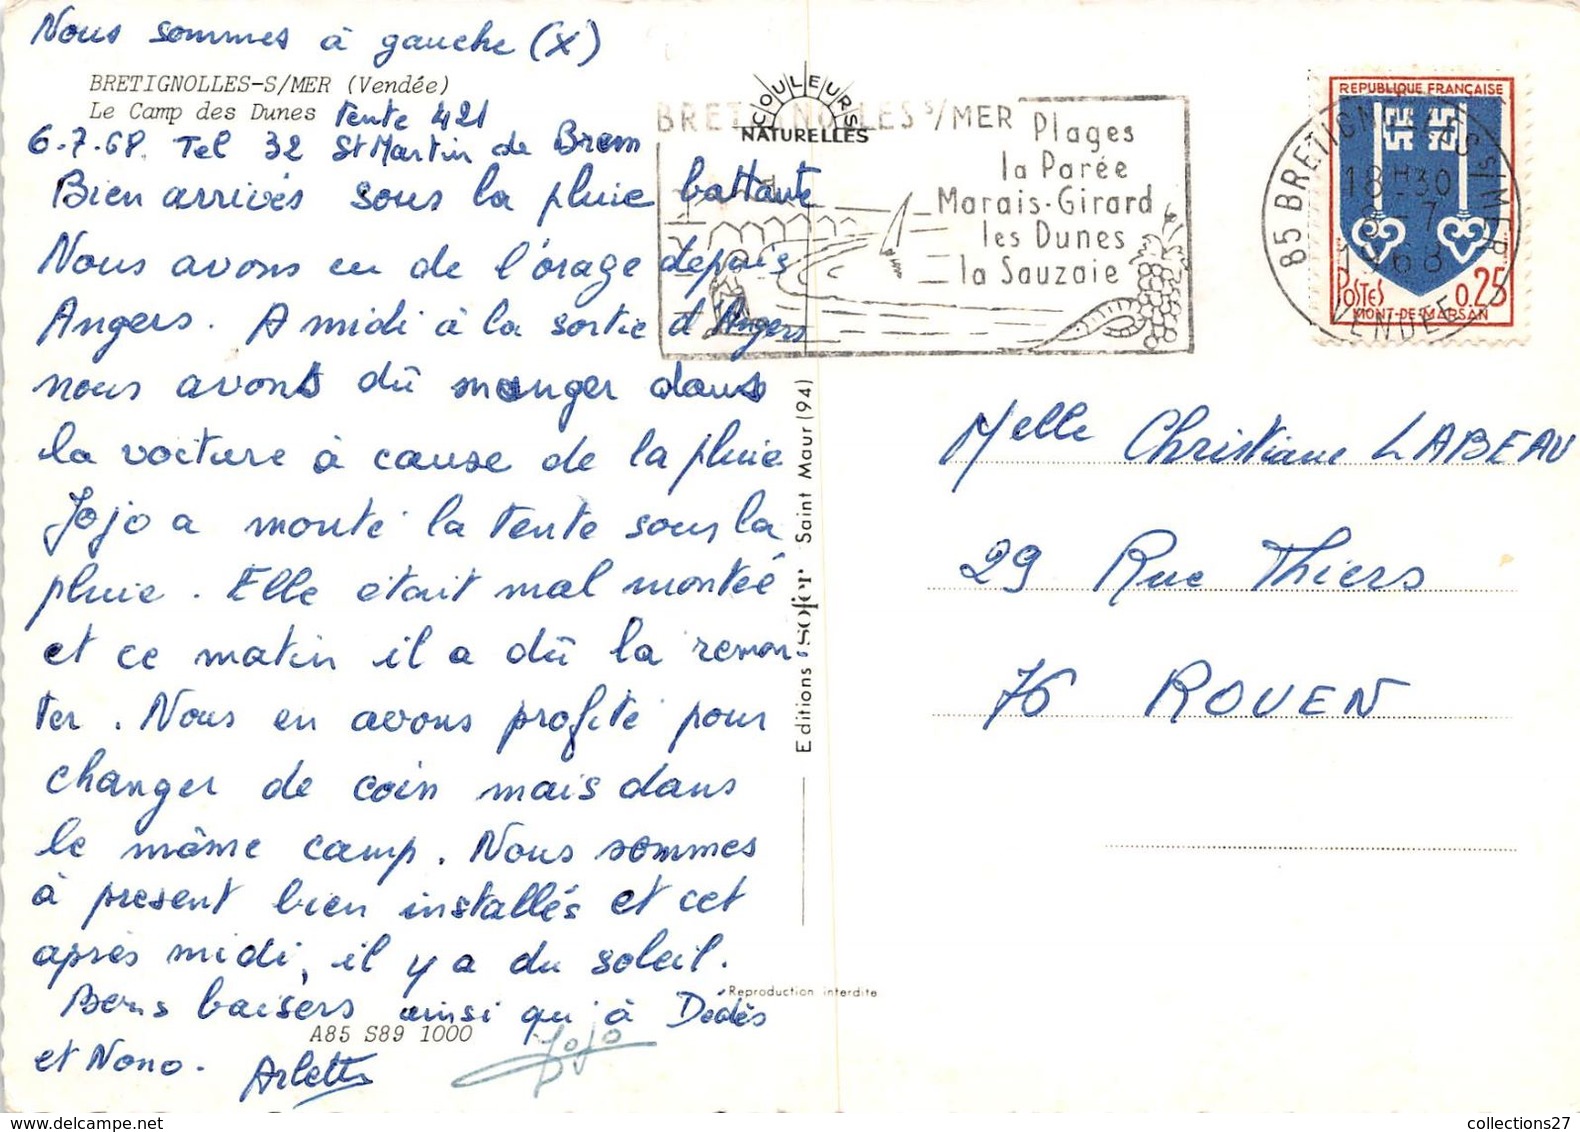 Nous sommes à gauche (X)
BRETIGNOLLES-S/MER (Vendée)
Le Camp des Dunes Tente 421
6.7.68. Tel 32 St Martin de Brem
Bien arrivés sous la pluie battante
Nous avons eu de l'orage depuis
Angers. A midi à la sortie d'Angers
nous avons dû manger dans
la voiture à cause de la pluie
Jojo a monté la tente sous la
pluie. Elle était mal montée
et ce matin il a dû la remon-
ter. Nous en avons profité pour
changer de coin mais dans
le même camp. Nous sommes
à présent bien installés et cet
après midi, il y a du soleil.
Bons baisers ainsi qu'à Dédés
et Nono. Arlette Jojo
A85 S89 1000
COULEURS
NATURELLES
Editions "sofer" Saint Maur (94)
Reproduction interdite
BRETIGNOLLES S/MER
Plages
la Parée
Marais-Girard
les Dunes
la Sauzaie
85 BRETIGNOLLES S/MER
18H30
8-7
1968
VENDEE
REPUBLIQUE FRANÇAISE
POSTES 0,25
MONT-DE-MARSAN
Melle Christiane LABEAU
29 Rue Thiers
76 ROUEN
collections27